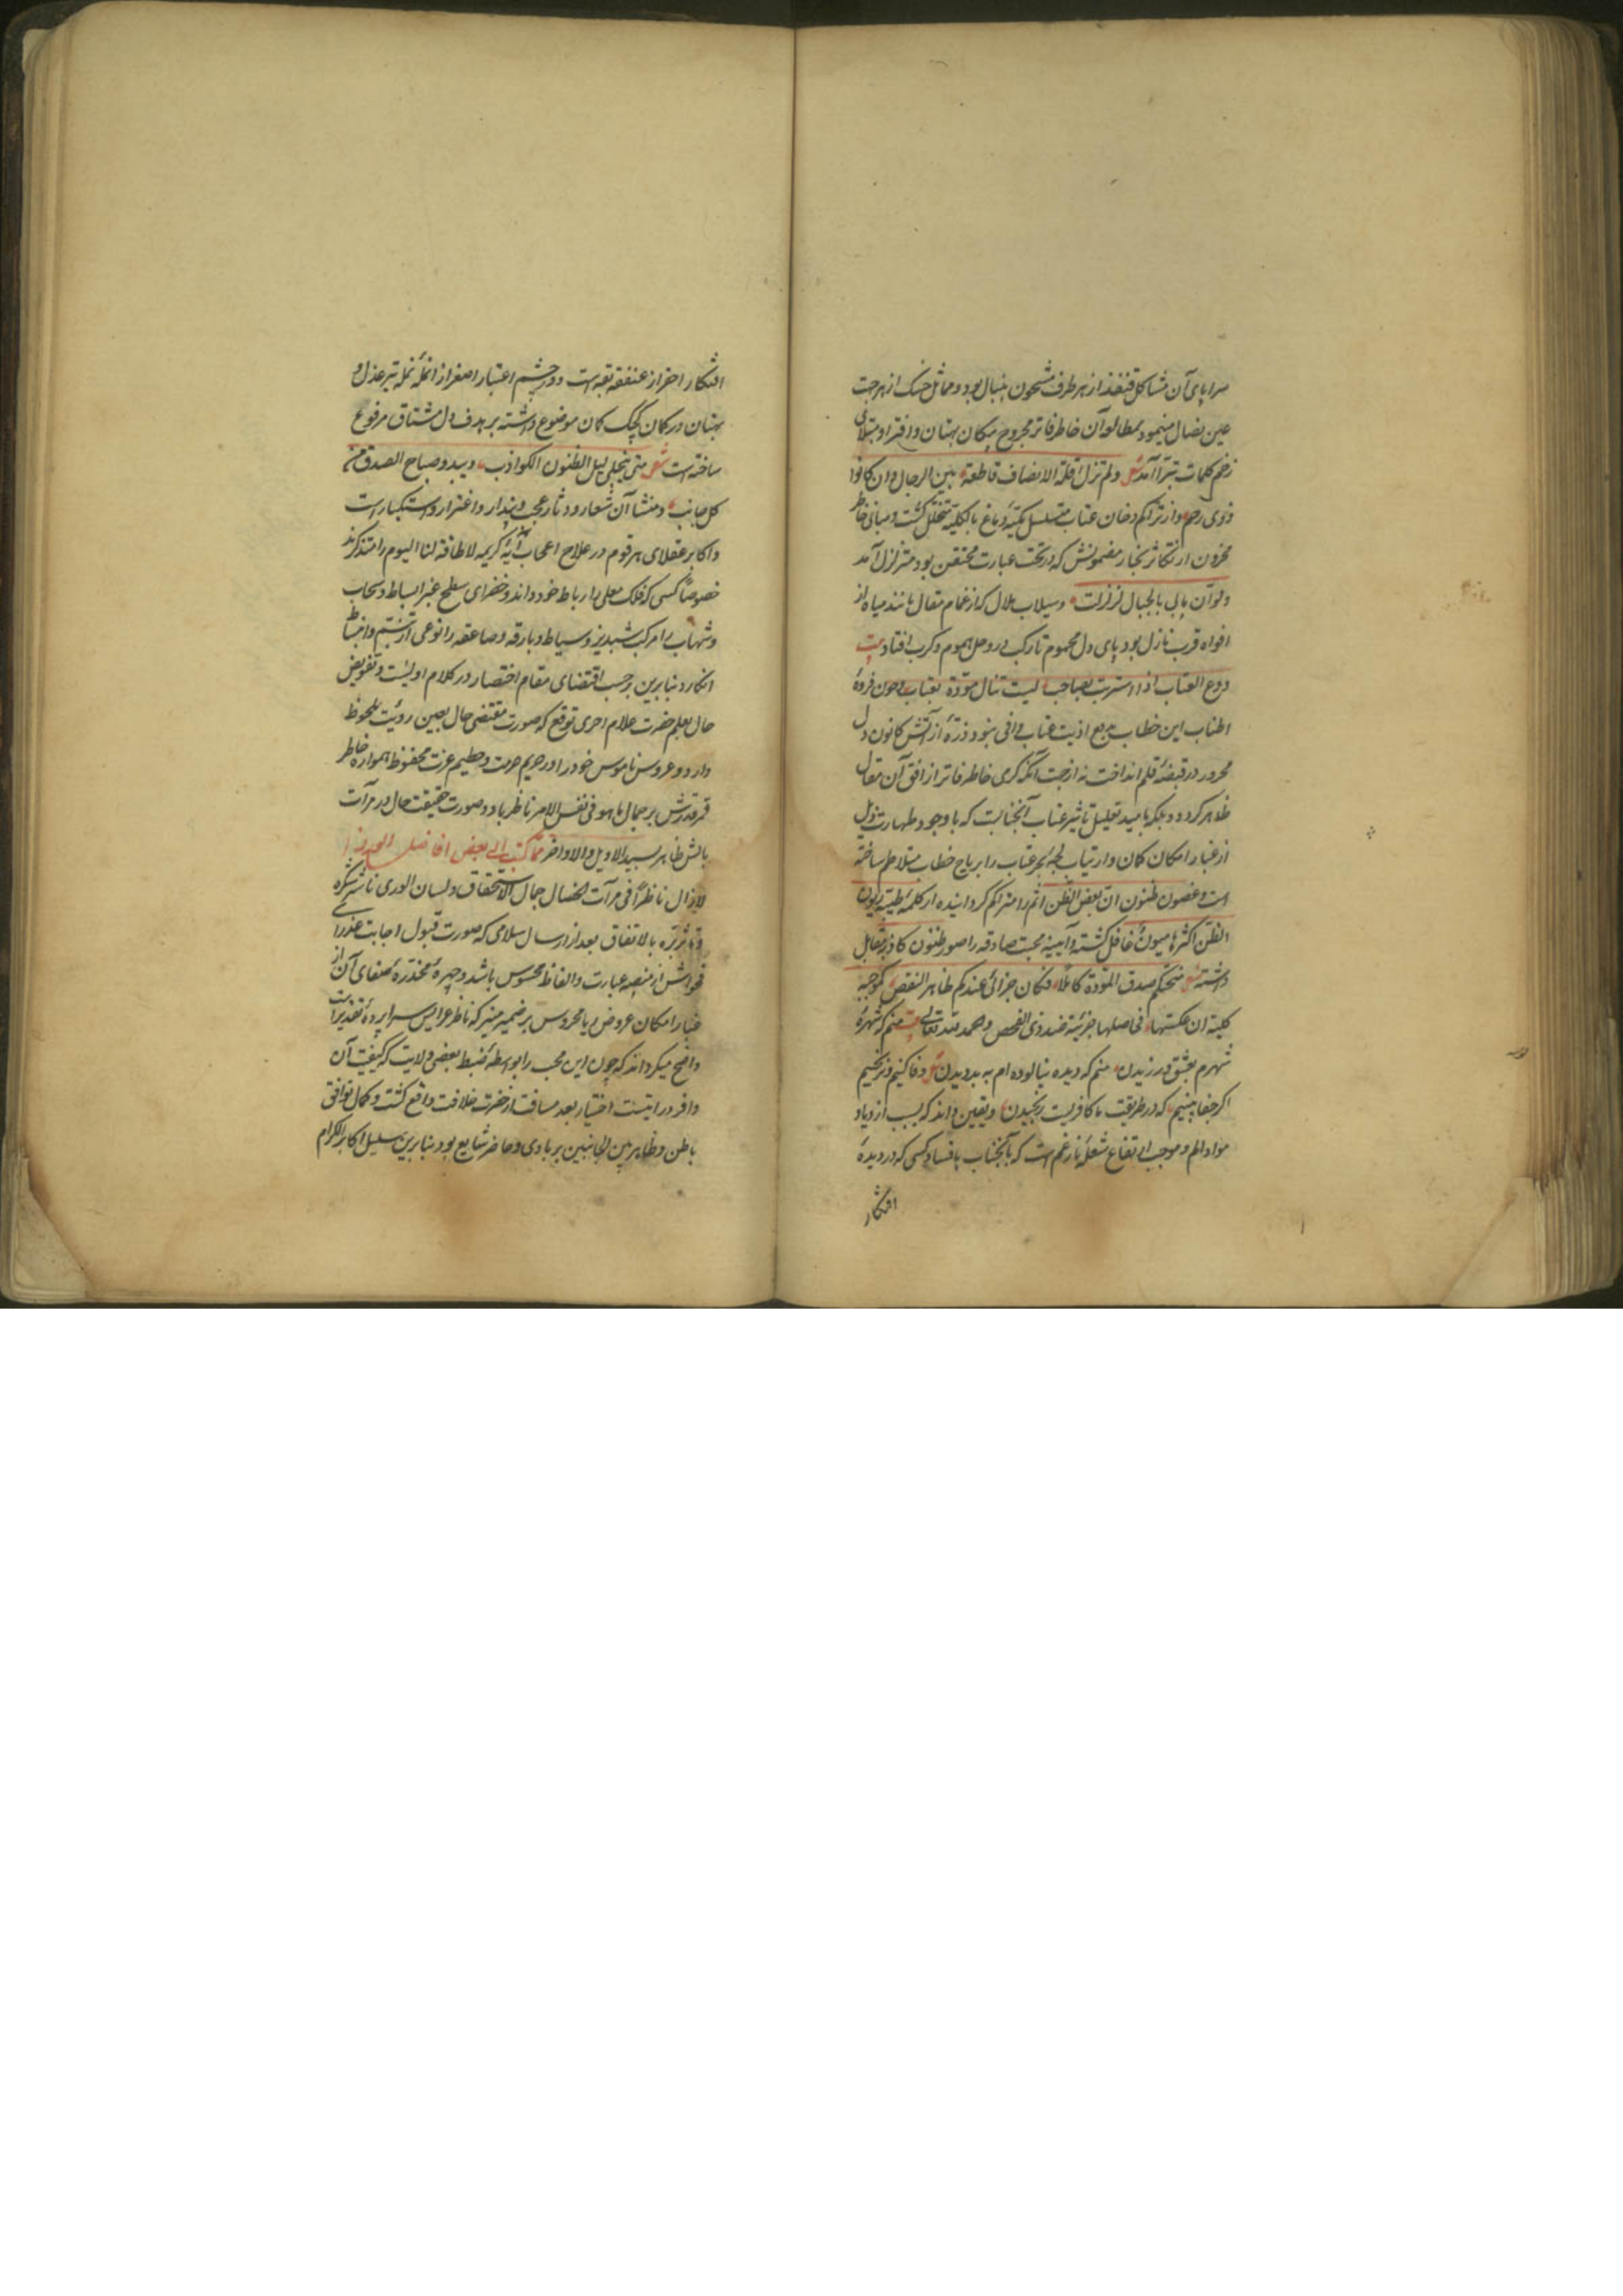 سراپای آن مشاکل قنفذ از هر طرف مشحون بنبال بود و مماثل خسک از هر جهت
عین نصال مینمود بمطالعه آن خاطر فاتر مجروح پیکان بهتان و افترا و مبتلای
زخم کلمات تبرا آمد شعر ولم تزل قلة الانصاف قاطعة بین الرجال وان کانوا
ذوی رحم و از تراکم دخان عتاب متسلسل تکیه دماغ بالکلیه متخلل گشت و مبانی خاطر
محزون از تکاثر بخار مضمونش که در تحت عبارت محتقن بود متزلزل آمد
ولو آن مابی بالجبال لزلزلت وسیلاب ملال که از غمام مقال مانند میاه از
افواه قرب نازل بود پای دل محموم تا رکب در وحل هموم و کرب افتاد بیت
ودع العتاب اذا استربت بصاحب لیست تنال مودة بعتاب و چون فروهٔ
اطناب این خطاب بدفع اذیت عتاب وافی نبود ذرهٔ از آتش کانون دل
محرور در قبضهٔ قلم انداخت نه از جهت آنکه گرمی خاطر فاتر از افق آن مقال
ظاهر گردد بلکه بامید تقلیل تاثیر عتاب آنجنابست که باوجود طهارت ذیل
از غبار امکان کمان و ارتیاب لجهٔ بحر عتاب را بریاح خطاب متلاطم ساخته
است و غصون ظنون ان بعض الظن اثم را متراکم گردانیده از کلمهٔ طیبه
الظن اکثرها میون غافل گشته و آیینهٔ محبت صادقه را صور ظنون کاذبه مقابل
داشته شعر منحتکم صدق المودة کاملا فکان جزائی عندکم ظاهر النقص کموجبة
کلیة ان عکستها فی اصلها جزئیة عند ذی الفحص و حمد لله تعالی بیت منم که شهرهٔ
شهرم بعشق ورزیدن منم که دیده نیالوده ام به بد دیدن وفا کنیم و نرنجیم
اگر جفا بینیم که در طریقت ما کافریست رنجیدن و یقین داند که سبب ازدیاد
مواد الم و موجب ارتفاع شعلهٔ نار غم است که آنجناب بافساد کسی که در دیدهٔ
افتکار
افتکار احقر از عنفقه بقه است و در چشم اعتبار اصغر از انملهٔ نمله تیر عذل و
بهتان در کمان کچک کمان موضوع داشته بر هدف دل مشتاق مرفوع
ساخته است شعر متی ینجلی لیل الظنون الکواذب ویبدو صباح الصدق من
کل جانب و منشا آن شعار و دثار عجب و پندار و اغترار و استکبار است
و اکابر عقلای هر قوم در علاج اعجاب آیهٔ کریمه لا طاقة لنا الیوم را متذکرند
خصوصاً کسی که فلک معلی را رباط خود داند و خضرای سطح غبرا بساط و سحاب
و شهاب را مرکب شبدیز و سیاط و بارقه و صاعقه را نوعی از تبسم و انبساط
انگارد بنابرین برحسب اقتضای مقام اختصار در کلام اولیست و تفویض
حال بعلم حضرت علام احری توقع که صورت مقتضی حال بعین رویت ملحوظ
دارد و عروس ناموس خود را در حریم حرمت و حطیم عزت محفوظ همواره خاطر
قمر قدرش بر جمال ما هو فی نفس الامر ناظر باد و صورت حقیقت حال در مرآت
بالش ظاهر بسید الاوایل والاواخر مما کتب الی بعض افاضل
لازال ناظراً فی مرآت الخصال جمال الاستحقاق ولسان الوری ناشر شکره
بالاتفاق بعد از ارسال سلامی که صورت قبول اجابت عذرا
فحواش از منصهٔ عبارت و الفاظ محسوس باشد و چهرهٔ مخدرهٔ صفای آن از
غبار امکان عروض ریا محروس بر ضمیر منیر که ناظر عرایس سراپردهٔ تقدیرات
واضح میگرداند که چون این محب را بواسطهٔ ضبط بعضی ولایت که کیفیت آن
وافر درایتست اختیار بعد مسافت از حضرت خلافت واقع گشت و کمال توافق
باطن و ظاهر بین الجانبین بر بادی و حاضر شایع بود بنابرین سلیل اکابر الکرام